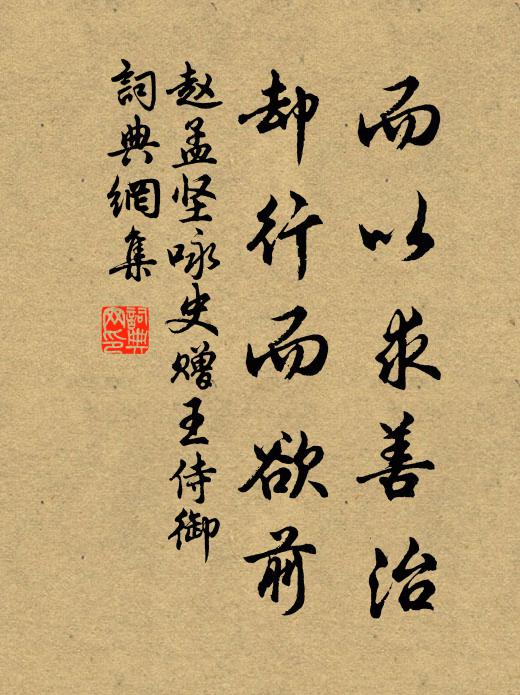 而以求善治
却行而欲前
赵孟坚咏史赠王侍御
詞典網集
詞典
网印